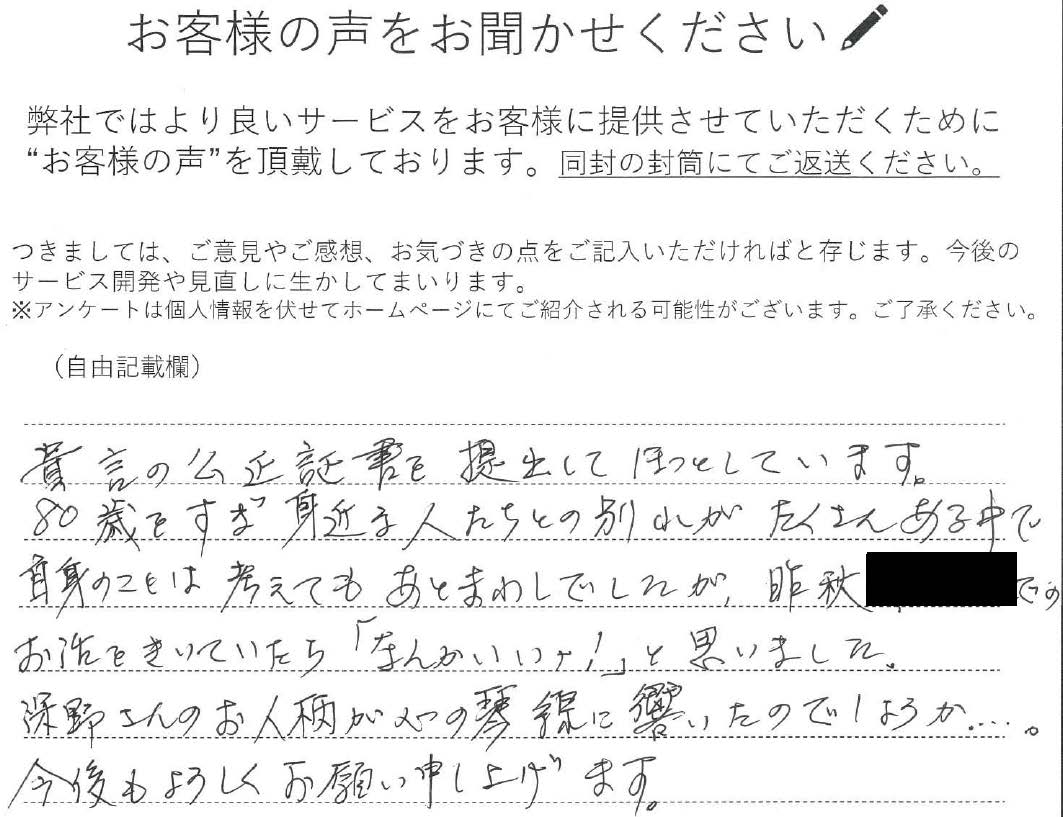 お客様の声をお聞かせください
弊社ではより良いサービスをお客様に提供させていただくために
“お客様の声”を頂戴しております。同封の封筒にてご返送ください。
つきましては、ご意見やご感想、お気づきの点をご記入いただければと存じます。今後の
サービス開発や見直しに生かしてまいります。
※アンケートは個人情報を伏せてホームページにてご紹介される可能性がございます。ご了承ください。
（自由記載欄）
言の公正証書を提出してほっとしています。
80歳をすぎ身近な人たちとの別れがたくさんある中で
自身のことは考えてもあとまわしでしたが、昨秋 での
お話をきいていたら「なんかいいナ!」と思いました。
深野さんのお人柄が心の琴線に響いたのでしょうか…。
今後もよろしくお願い申し上げます。